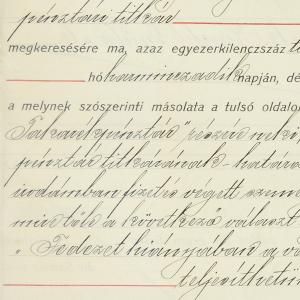 pénztári titkár
megkeresésére ma, azaz egyezerkilenczszáz
hó harminczadik napján, dé
a melynek szószerinti másolata a tulsó oldalo
Takarékpénztár" részére neki,
pénztár titkárának - határi
irodámban fizetés végett
mire tőle a következő választ
„Fedezet hiányában a vá
teljesithetün